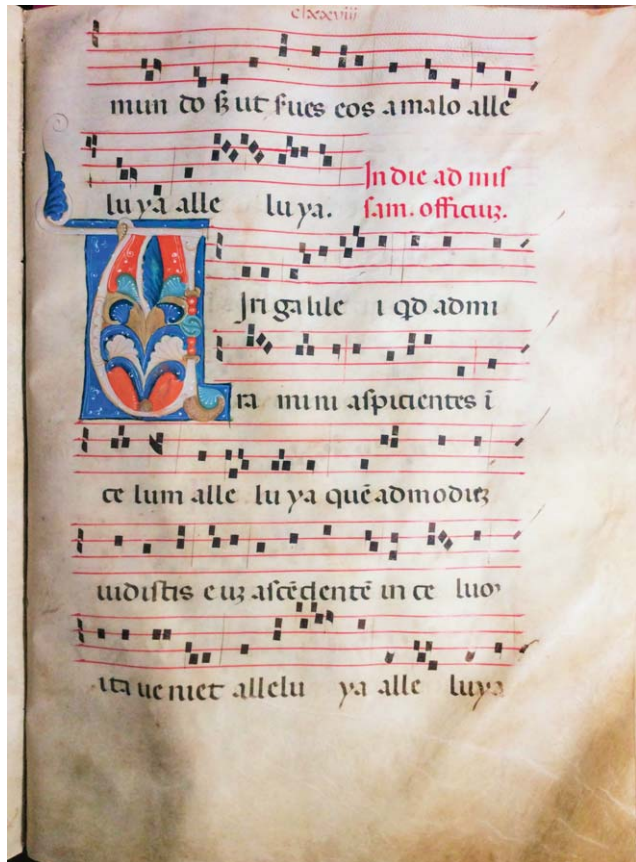 clxxxviii
mun do sʒ ut sues eos a malo alle
lu ya alle lu ya.
In die ad mis
sam. officiuʒ.
Uiri galile i qd admi
ra mini aspicientes ī
ce lum alle lu ya quē admodūʒ
uidistis e uʒ ascēdentē in ce luʒ
ita ue niet allelu ya alle luya